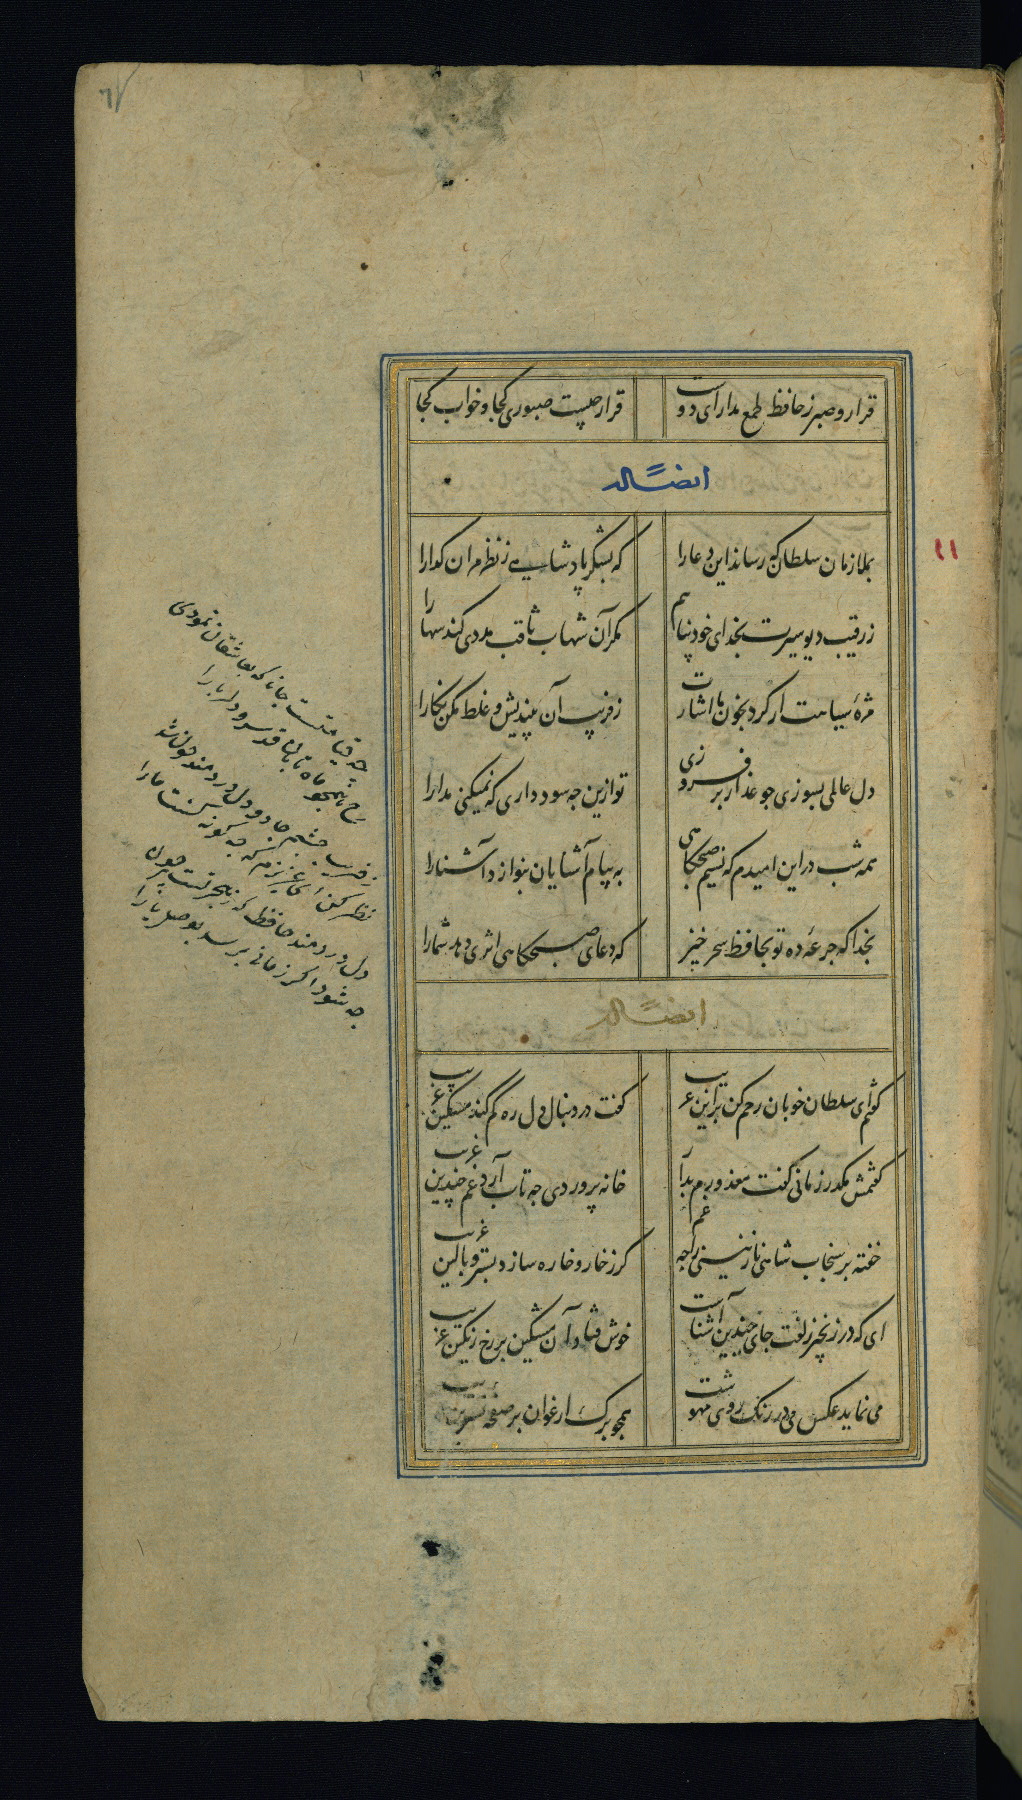 قرار و صبر ز حافظ طمع مدار ای دوست
قرار چیست صبوری کجا و خواب کجا
ایضاً له
بملازمان سلطان که رساند این دعا را
که بشکر پادشاهی ز نظر مران کدا را
ز رقیب دیوسیرت بخدای خود پناهم
مکر آن شهاب ثاقب مددی کند سها را
مژهٔ سیاهت ار کرد بخون ما اشارت
ز فریب آن بیندیش و غلط مکن نکارا
دل عالمی بسوزی جو عذار بر فروزی
تو ازین جه سود داری که نمیکنی مدارا
همه شب در این امیدم که نسیم صبحکاهی
به پیام آشنایان بنوازد آشنا را
بخدا که جرعهٔ ده تو بحافظ سحر خیز
که دعای صبحکاهی اثری دهد شما را
ایضاً له
کفتم ای سلطان خوبان رحم کن بر این غریب
کفت در دنبال دل ره کم کند مسکین غریب
کفتمش مکذر زمانی کفت معذورم بدار
خانه پروردی جه تاب آرد غم چندین غریب
خفته بر سنجاب شاهی نازنینی را جه غم
کر ز خار و خاره سازد بستر و بالین غریب
ای که در زنجیر زلفت جای چندین آشناست
خوش فتاد آن مشکین بر رخ رنکین غریب
می نماید عکس می در رنک روی مهوشت
همجو برک ارغوان بر صفحه نسرین غریب
جه قیامتست جانا که بعاشقان نمودی
رخ همجو ماه تابان قد سرو دلربا را
ز فریب جشم جادو دل دردمند خون شد
نظر کن ای عزیزم که جه کونه کشت ما را
دل دردمند حافظ که ز هجر تست پر خون
جه شود اکر زمانی برسد بوصل یارا
۱۱